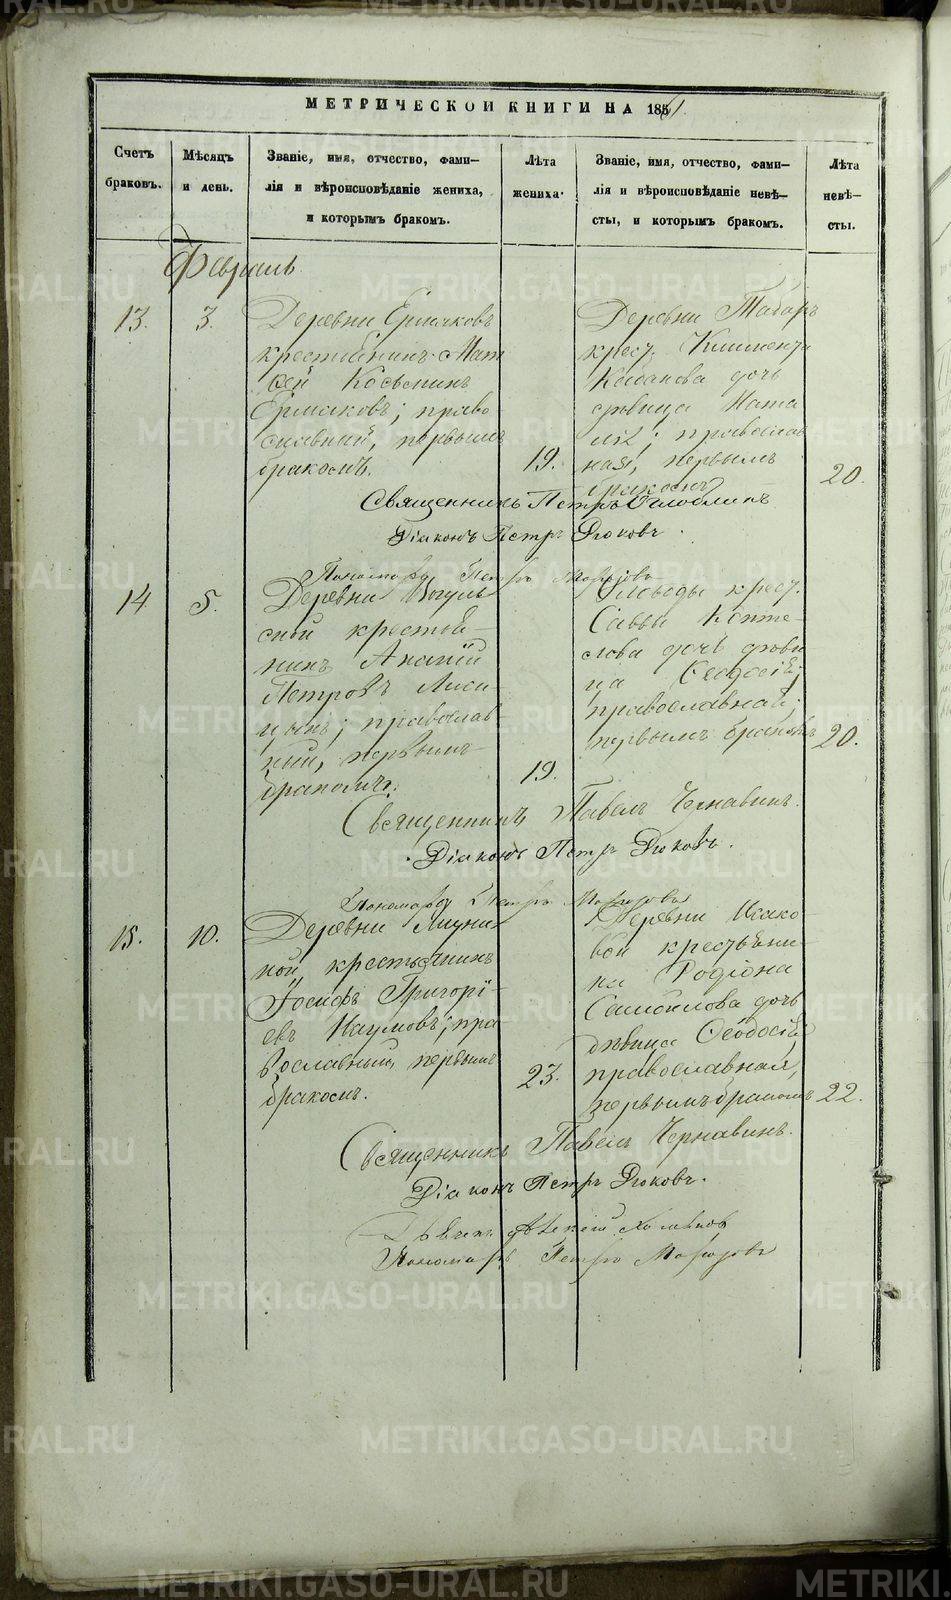 МЕТРИЧЕСКОЙ КНИГИ НА 1861.
Счетъ
браковъ.
Мѣсяцъ
и день.
Званіе, имя, отчество, фами-
лія и вѣроисповѣданіе жениха,
и которымъ бракомъ.
Лѣта
жениха.
Званіе, имя, отчество, фами-
лія и вѣроисповѣданіе невѣ-
сты, и которымъ бракомъ.
Лѣта
невѣ-
сты.
Февраль.
13.
3.
Деревни Ермаковъ
крестьянинъ Мат
ѳей Косьминъ
Ермаковъ; право
славный, первымъ
бракомъ.
19.
Деревни Табаръ
крест. Климента
дочь
дѣвица Ната
лія; православ
ная, первымъ
бракомъ
20.
Священникъ Петръ
Діаконъ Петръ Дюковъ.
Пономарь Петръ Морозовъ
14
5.
Деревни Вогуль
ской крестья-
нинъ Ананій
Петровъ Лиси-
цынъ; православ-
ный, первымъ
бракомъ.
19.
Слободы крест.
Саввы Копте-
лова дочь дѣви
ца Ѳеодосія;
православная;
первымъ бракомъ
20.
Священникъ Павелъ Чернавинъ.
Діаконъ Петръ Дюковъ.
Пономарь Петръ Морозовъ
15.
10.
Деревни
ной, крестьянинъ
Іосифъ Григорі-
евъ Наумовъ; пра-
вославный, первымъ
бракомъ.
23.
Деревни Исако-
вой крестьяни-
на Родіона
Самойлова дочь
дѣвица Ѳеодосія
православная,
первымъ бракомъ
22.
Священникъ Павелъ Чернавинъ.
Діаконъ Петръ Дюковъ.
Дьячекъ
Пономарь Петръ Морозовъ
METRIKI.GASO-URAL.RU